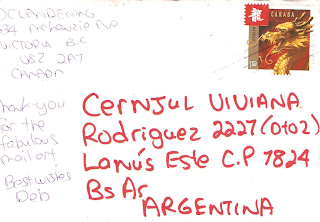 OCLANDENING
34 McKenzie Ave
VICTORIA B.C
V8Z 2A7
CANADA
hank you
for the
fabulous
mail art
Best wishes
Deb
龍
CANADA
CERNJUL VIVIANA
Rodriguez 2227 (Dto2)
Lanús Este C.P 1824
Bs As
ARGENTINA